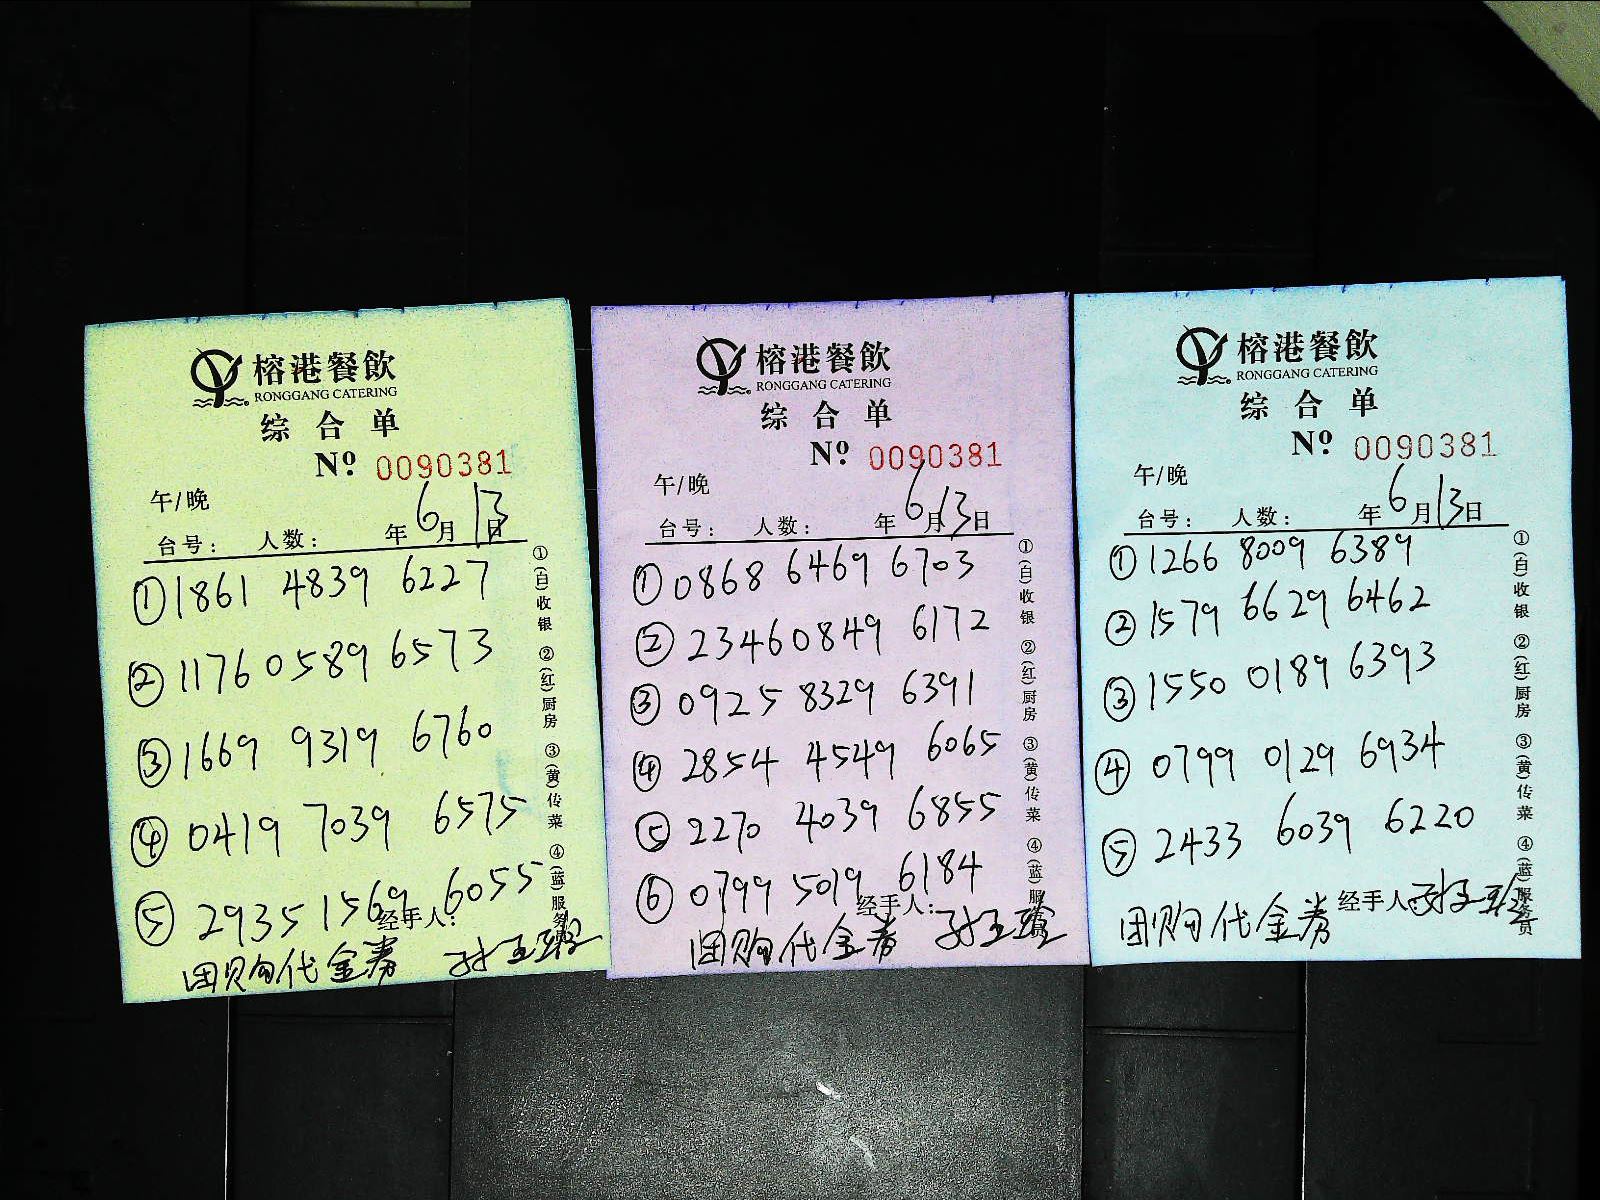 榕港餐飲
RONGGANG CATERING
综合单
Nº 0090381
午/晚
台号： 人数： 年6月13日
①1861 4839 6227
②1176 0589 6573
③1669 9319 6760
④0419 7039 6575
⑤2935 1569 6055
经手人：
团购代金券
①(白)收银 ②(红)厨房 ③(黄)传菜 ④(蓝)服务员
榕港餐飲
RONGGANG CATERING
综合单
Nº 0090381
午/晚
台号： 人数： 年6月13日
①0868 6469 6703
②2346 0849 6172
③0925 8329 6391
④2854 4549 6065
⑤2270 4039 6855
⑥0799 5019 6184
经手人：
团购代金券
①(白)收银 ②(红)厨房 ③(黄)传菜 ④(蓝)服务员
榕港餐飲
RONGGANG CATERING
综合单
Nº 0090381
午/晚
台号： 人数： 年6月13日
①1266 8009 6389
②1579 6629 6462
③1550 0189 6393
④0799 0129 6934
⑤2433 6039 6220
经手人
团购代金券
①(白)收银 ②(红)厨房 ③(黄)传菜 ④(蓝)服务员